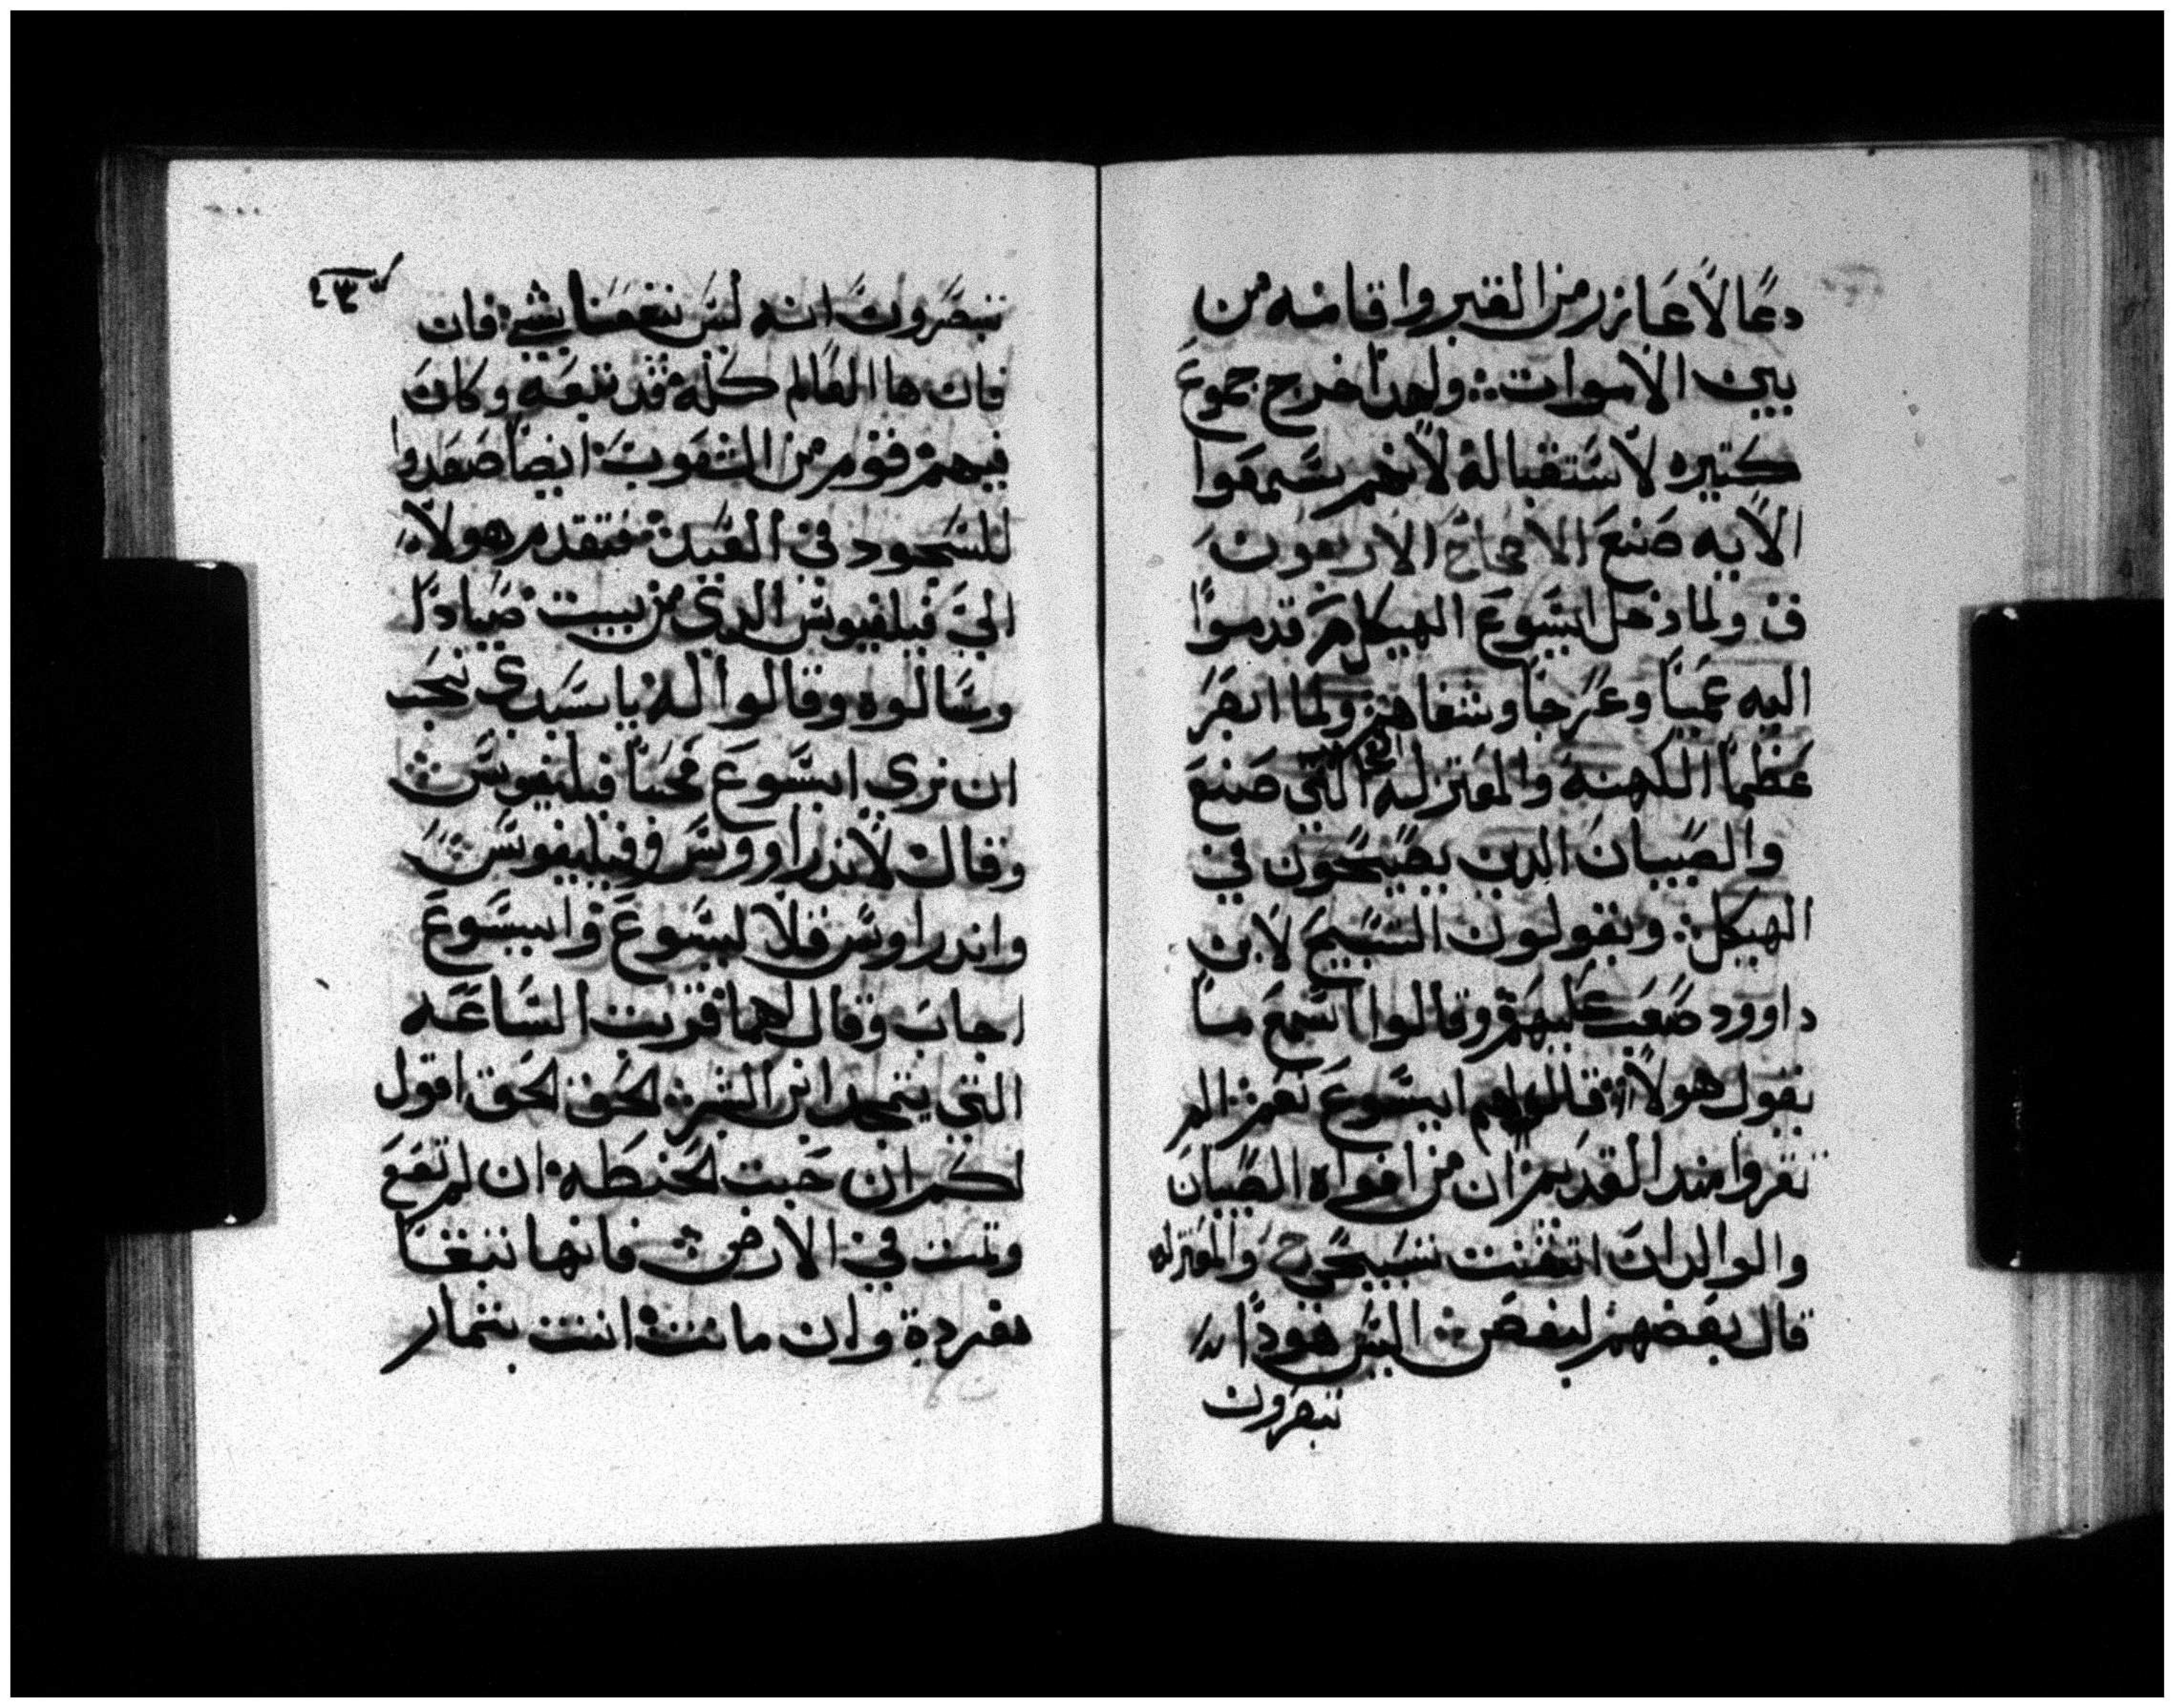 دعا لاعازر من القبر واقامه من
بين الاموات ولهدا خرج جموع
كتيره لاستقباله لانهم سمعوا
الايه صنع الاصحاح الاربعون
ف ولما دخل ايسوع الهيكل قدموا
اليه عميا وعرجا وشفاهم ولما ابصر
عظما الكهنه والمعتزله التي صنع
والصبيان الدين يصيحون في
الهيكل ويقولون التسبيح لابن
داوود صعب عليهم وقالوا اتسمع ما
يقول هولا قال لهم ايسوع نعم الم
تقروا مند القديم ان من افواه الصبيان
والوالدان اتقنت تسبيحي والمعتزله
قال بعضهم لبعض اليس هودا
تبصرون
تبصرون انه ليس ينفعنا شي فان
فان ها العالم كله قد تبعه وكان
فيهم قوم من الشعوب ايضا صعدوا
للسجود في العيد فتقدم هولا
الى فيلفيوس الدي من بيت صيادا
وسالوه وقالوا له يا سيدي نحب
ان نرى ايسوع فجا فيليفوس
وقال لاندراووس وفيليفوس
واندراوس قلا ليسوع وايسوع
اجاب وقال لهما قربت الساعه
التي يتمجد ابن البشر الحق الحق اقول
لكم ان حبت الحنطه ان لم تقع
وتمت في الارض فانها تبقا
مفردة وان ماتت اتت بتمار